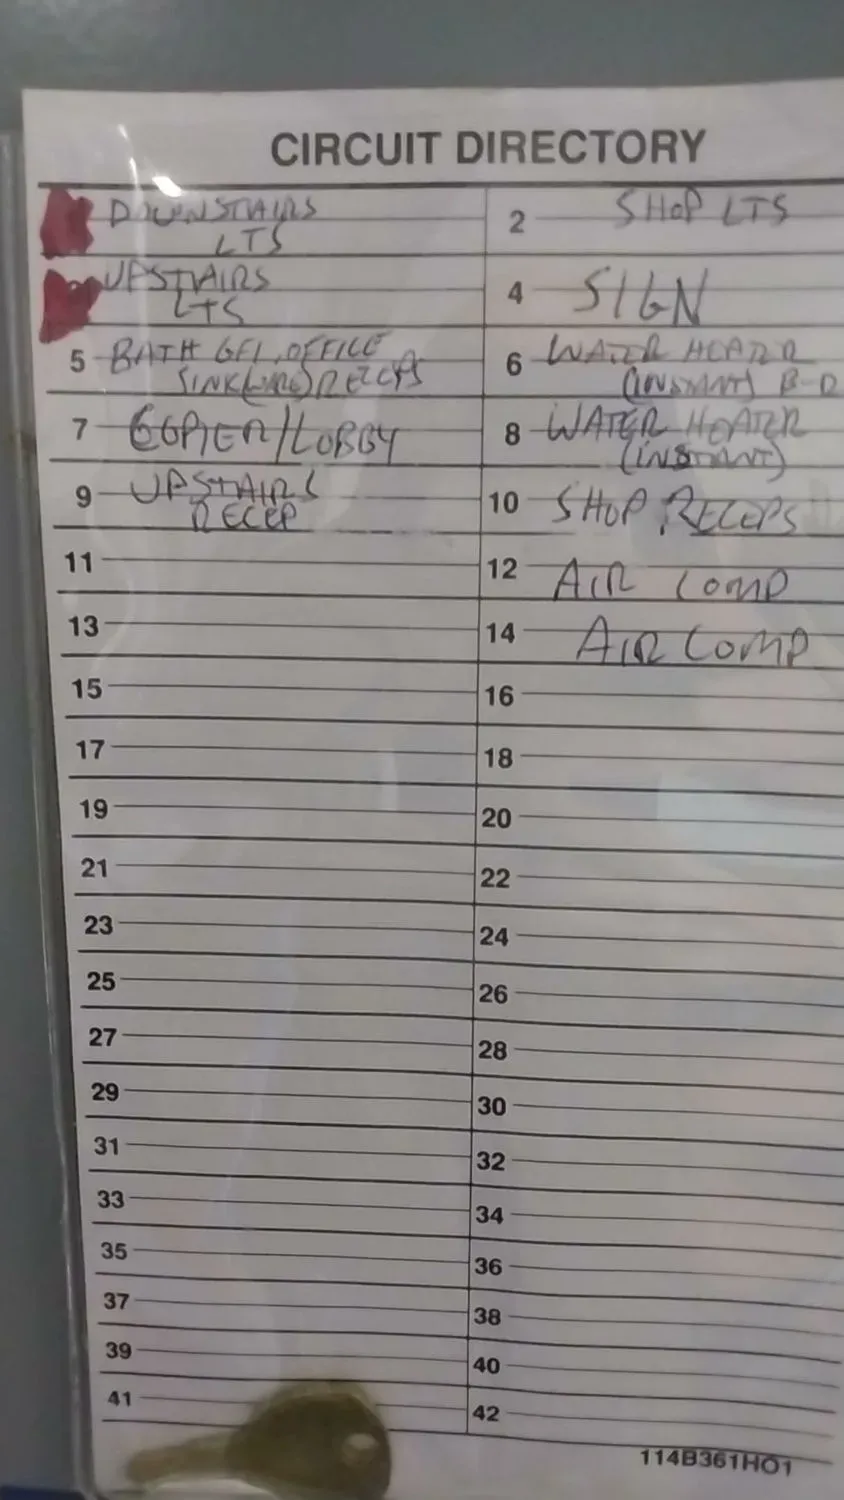 CIRCUIT DIRECTORY
DOWNSTAIRS
LTS
2 SHOP LTS
UPSTAIRS
LTS
4 SIGN
5 BATH GFI, OFFICE
SINK RECEPS
6 WATER HEATER
(INSTANT)
7 COPIER/LOBBY
8 WATER HEATER
(INSTANT)
9 UPSTAIRS
RECEP
10 SHOP RECEPS
11
12 AIR COMP
13
14 AIR COMP
15
16
17
18
19
20
21
22
23
24
25
26
27
28
29
30
31
32
33
34
35
36
37
38
39
40
41
42
114B361HO1